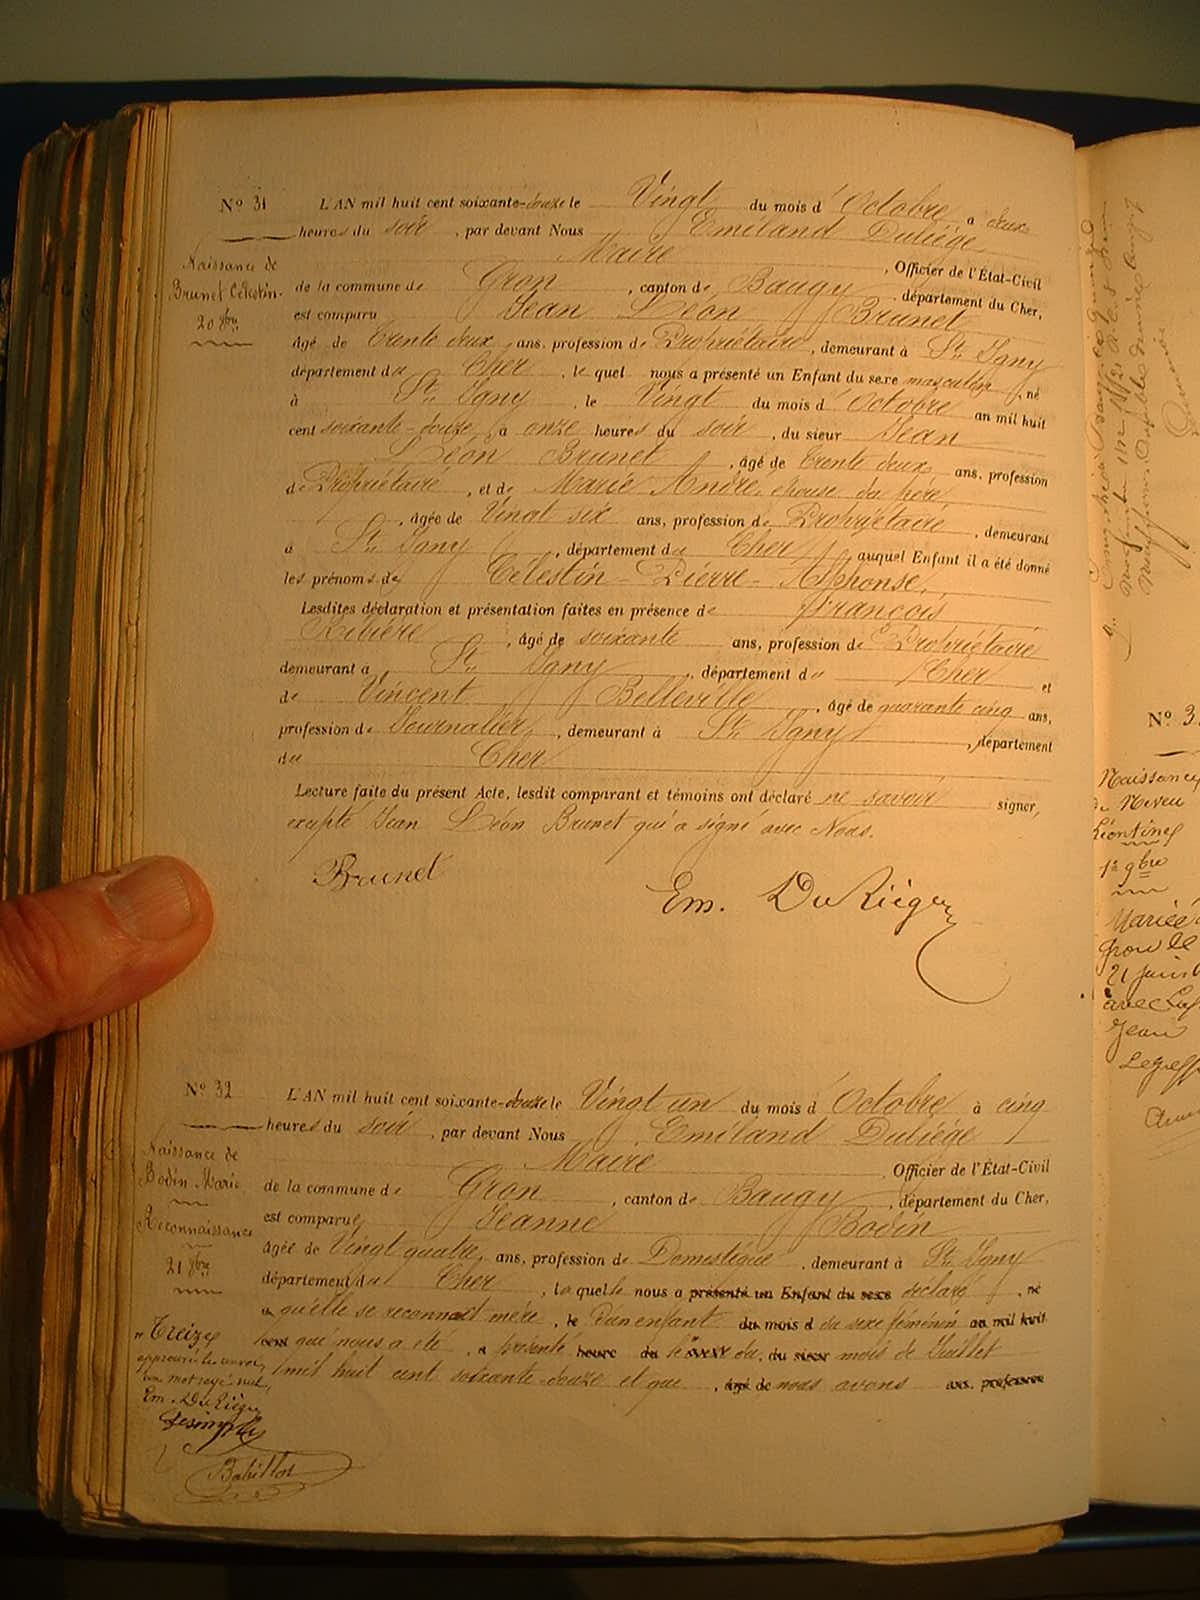 Nº 31
L'AN mil huit cent soixante-douze le Vingt du mois d'Octobre a deux
heures du soir, par devant Nous Emiland Duliége
Maire, Officier de l'État-Civil
de la commune de Gron, canton de Baugy, département du Cher,
est comparu Jean Léon Brunet
âgé de trente deux ans, profession de Propriétaire, demeurant à St. Igny
département du Cher, le quel nous a présenté un Enfant du sexe masculin, né
à St. Igny, le Vingt du mois d'Octobre an mil huit
cent soixante-douze, à onze heures du soir, du sieur Jean
Léon Brunet, âgé de trente deux ans, profession
de Propriétaire, et de Marie André, épouse du père
, âgée de Vingt six ans, profession de Propriétaire, demeurant
à St. Igny, département du Cher, auquel Enfant il a été donné
les prénoms de Célestin-Pierre-Alphonse,
Lesdites déclaration et présentation faites en présence de François
Ribière, âgé de soixante ans, profession de Propriétaire
demeurant à St. Igny, département du Cher et
de Vincent Belleville, âgé de quarante cinq ans,
profession de Journalier, demeurant à St. Igny, département
du Cher
Lecture faite du présent Acte, lesdit comparant et témoins ont déclaré ne savoir signer,
excepté Jean Léon Brunet qui a signé avec Nous.
Brunet
Naissance de
Brunet Célestin.
20 8bre
Nº 32
L'AN mil huit cent soixante-douze le Vingt un du mois d'Octobre à cinq
heures du soir, par devant Nous Emiland Duliége
Maire Officier de l'État-Civil
de la commune de Gron, canton de Baugy, département du Cher,
est comparue Jeanne Bodin
âgée de Vingt quatre ans, profession de Domestique, demeurant à St. Igny
département du Cher, la quelle nous a présenté un Enfant du sexe déclaré, né
à qu'elle se reconnait mère, le d'un enfant du mois d du sexe féminin an mil huit
cent que nous a été, à présenté heure du le du, du sieur mois de Juillet
mil huit cent soixante-douze et que, âgé de nous avons ans, profession
Naissance de
Bodin Marie
Reconnaissance
21 8bre
Treize
un mot rayé nul,
Babillot
Nº 3
Naissance
de Neveu
Léontine
1er 9bre
Mariée à
Gron le
21
avec
Jean